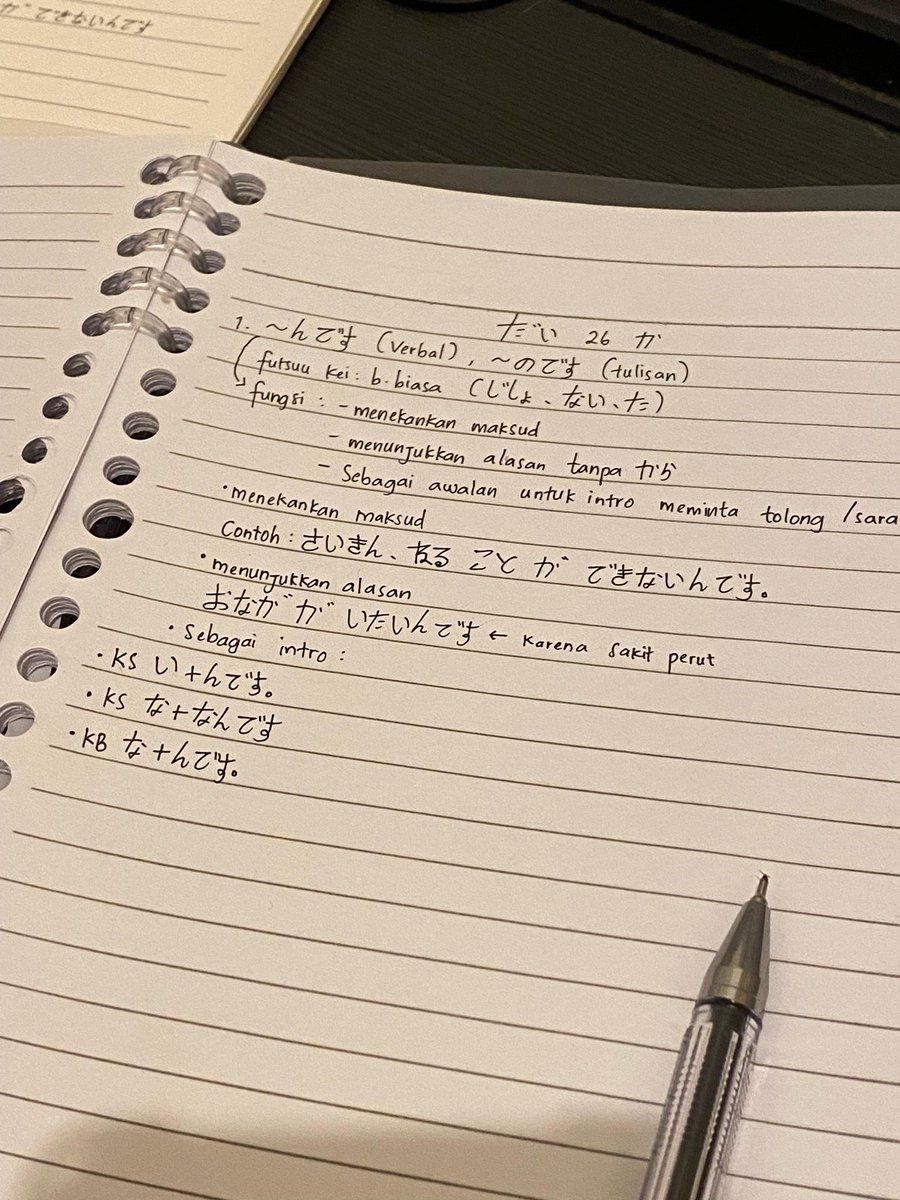 ができないんです
だい 26 か
1. ~んです (Verbal), ~のです (tulisan)
futsuu kei: b.biasa (じしょ、ない、た)
fungsi : - menekankan maksud
- menunjukkan alasan tanpa から
- Sebagai awalan untuk intro meminta tolong /sara
・menekankan maksud
Contoh : さいきん、ねる こと が できないんです。
・menunjukkan alasan
おなが が いたいんです ← karena sakit perut
・Sebagai intro :
・KS い+んです。
・KS な+なんです
・KB な+んです。